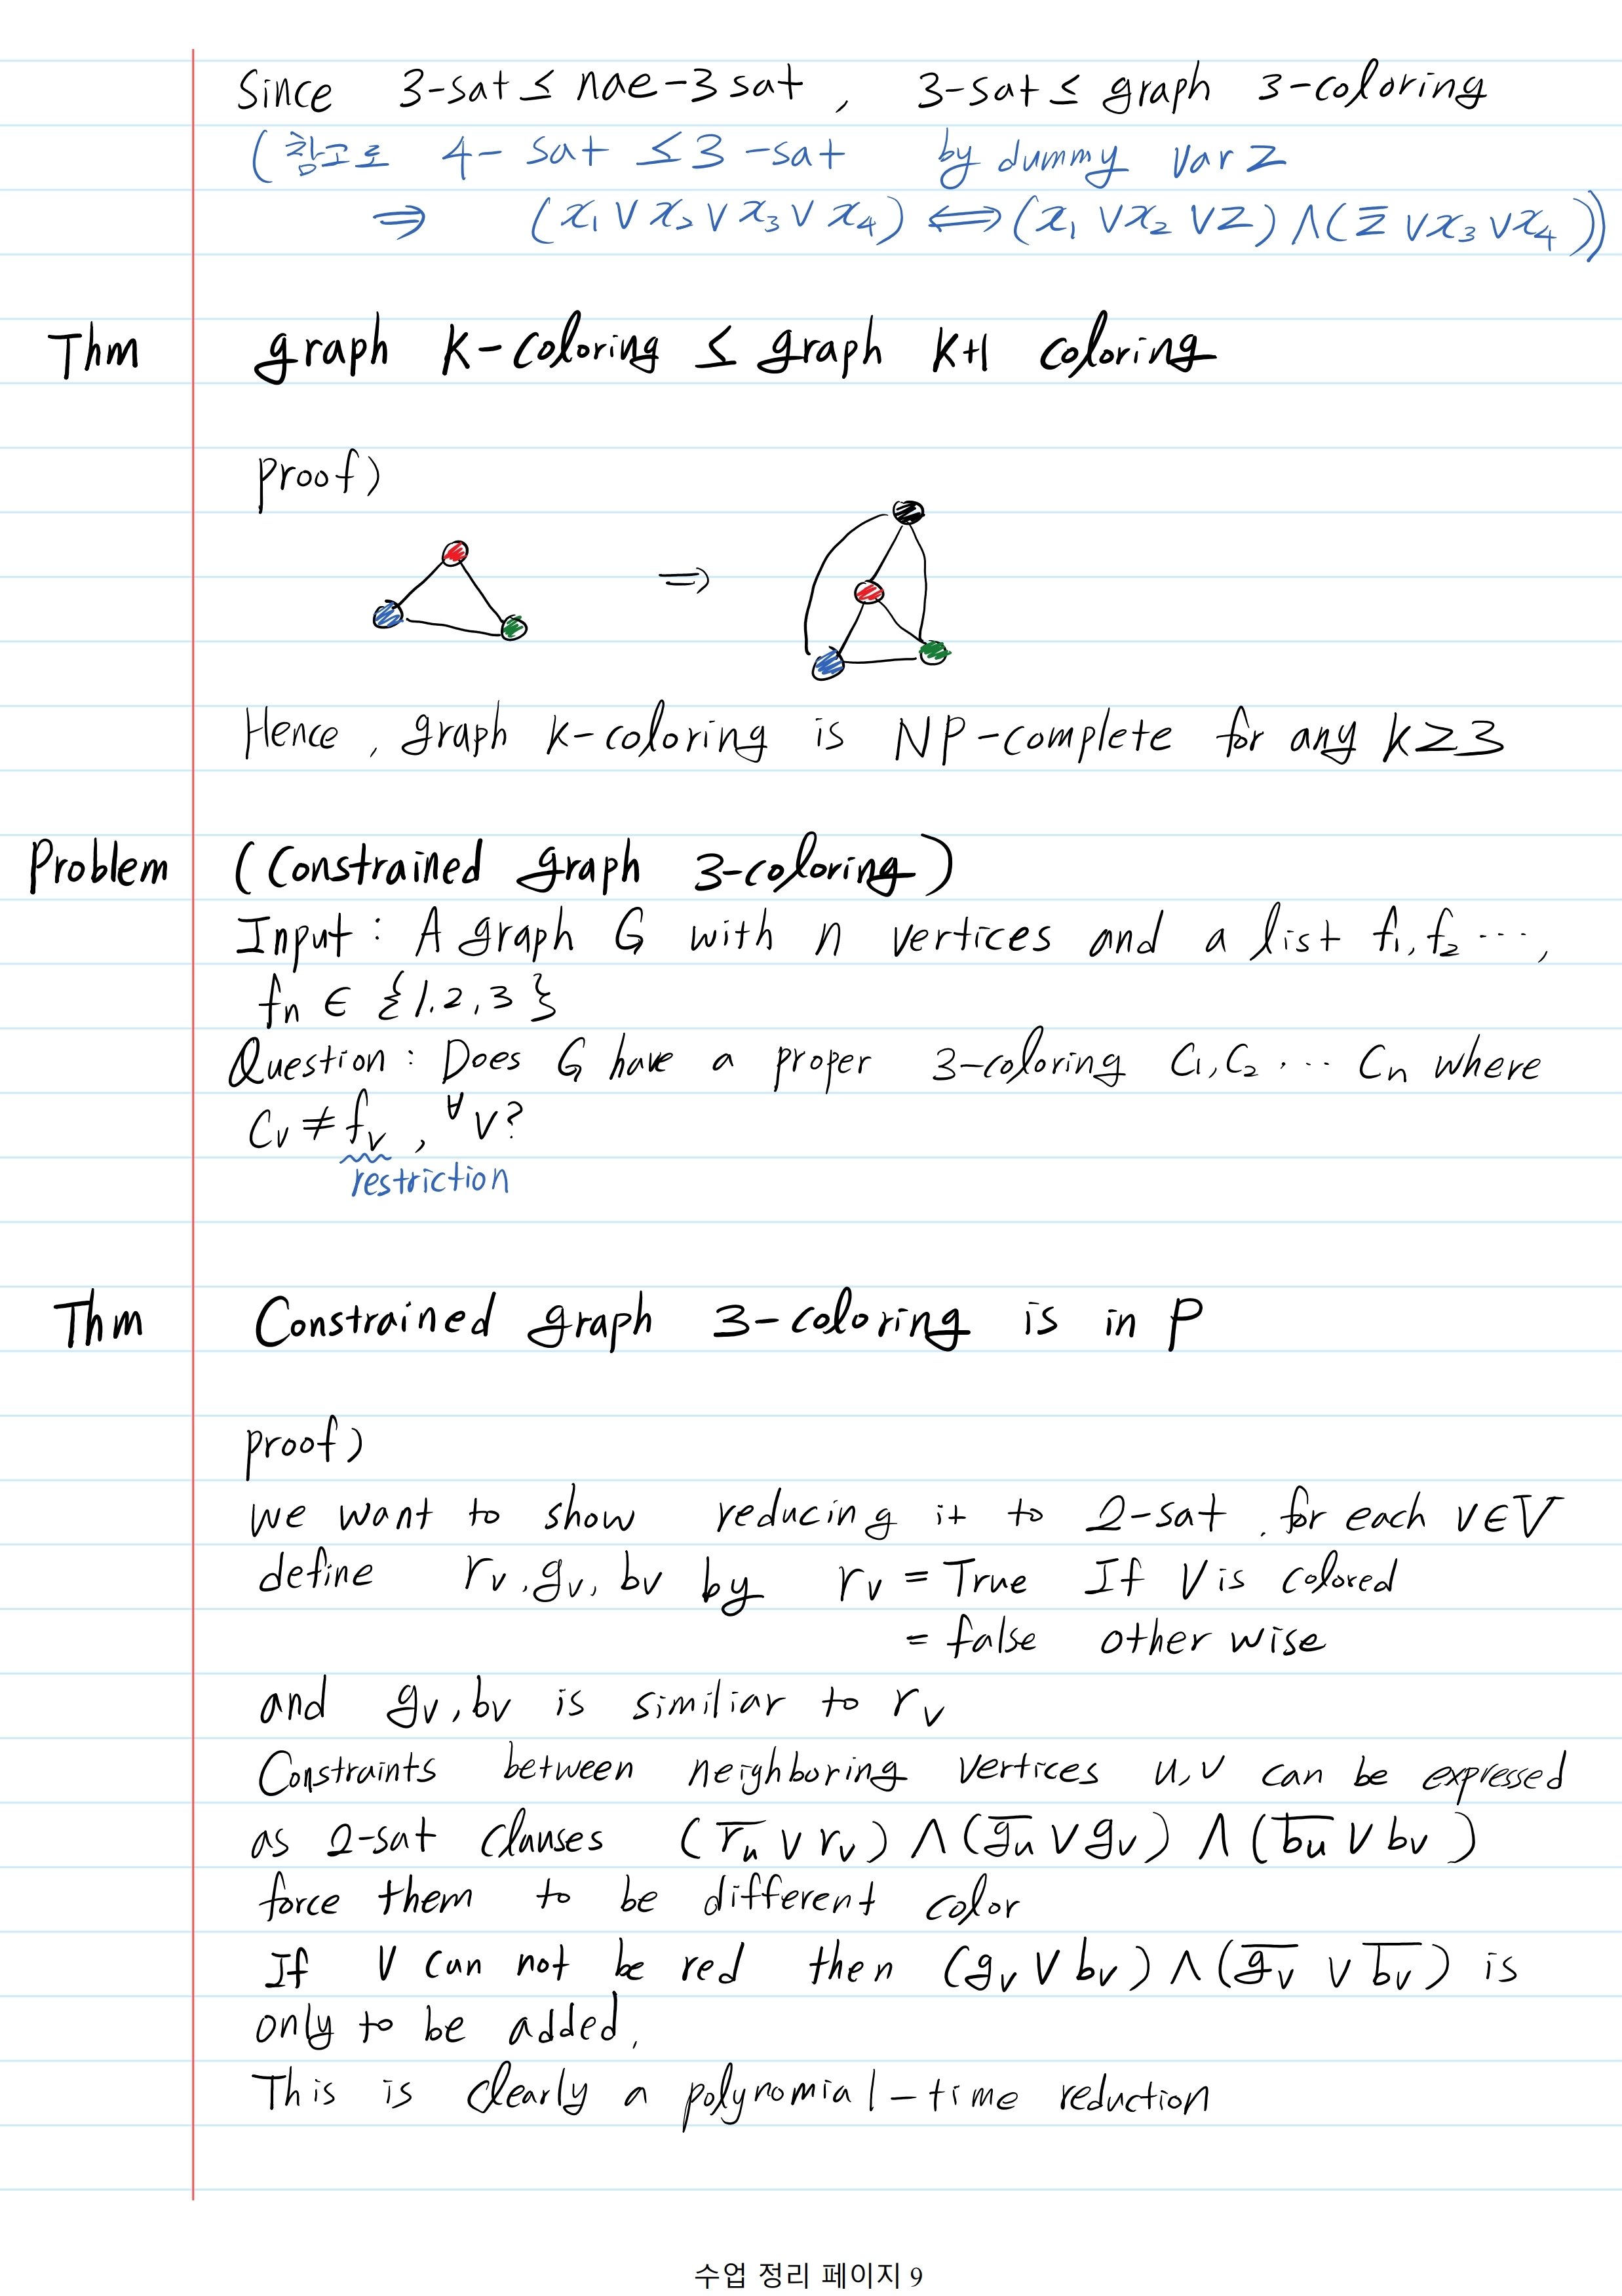 Since 3-sat ≤ nae-3sat, 3-sat ≤ graph 3-coloring
(참고로 4-sat ≤ 3-sat by dummy var z
⇒ (x₁ ∨ x₂ ∨ x₃ ∨ x₄) ⇔ (x₁ ∨ x₂ ∨ z) ∧ (z̅ ∨ x₃ ∨ x₄))
Thm graph k-coloring ≤ graph k+1 coloring
proof)
⇒
Hence, graph k-coloring is NP-complete for any k≥3
Problem (Constrained graph 3-coloring)
Input : A graph G with n vertices and a list f₁, f₂ ⋯,
fₙ ∈ {1.2,3}
Question : Does G have a proper 3-coloring C₁, C₂ ⋯ Cₙ where
Cᵥ ≠ fᵥ, ∀v?
restriction
Thm Constrained graph 3-coloring is in P
proof)
we want to show reducing it to 2-sat. for each v∈V
define rᵥ, gᵥ, bᵥ by rᵥ = True If V is colored
= false other wise
and gᵥ, bᵥ is similiar to rᵥ
Constraints between neighboring vertices u,v can be expressed
as 2-sat clauses (r̅ᵤ ∨ rᵥ) ∧ (g̅ᵤ ∨ gᵥ) ∧ (b̅ᵤ ∨ bᵥ)
force them to be different color
If V can not be red then (gᵥ ∨ bᵥ) ∧ (g̅ᵥ ∨ b̅ᵥ) is
only to be added.
This is clearly a polynomial-time reduction
수업 정리 페이지 9